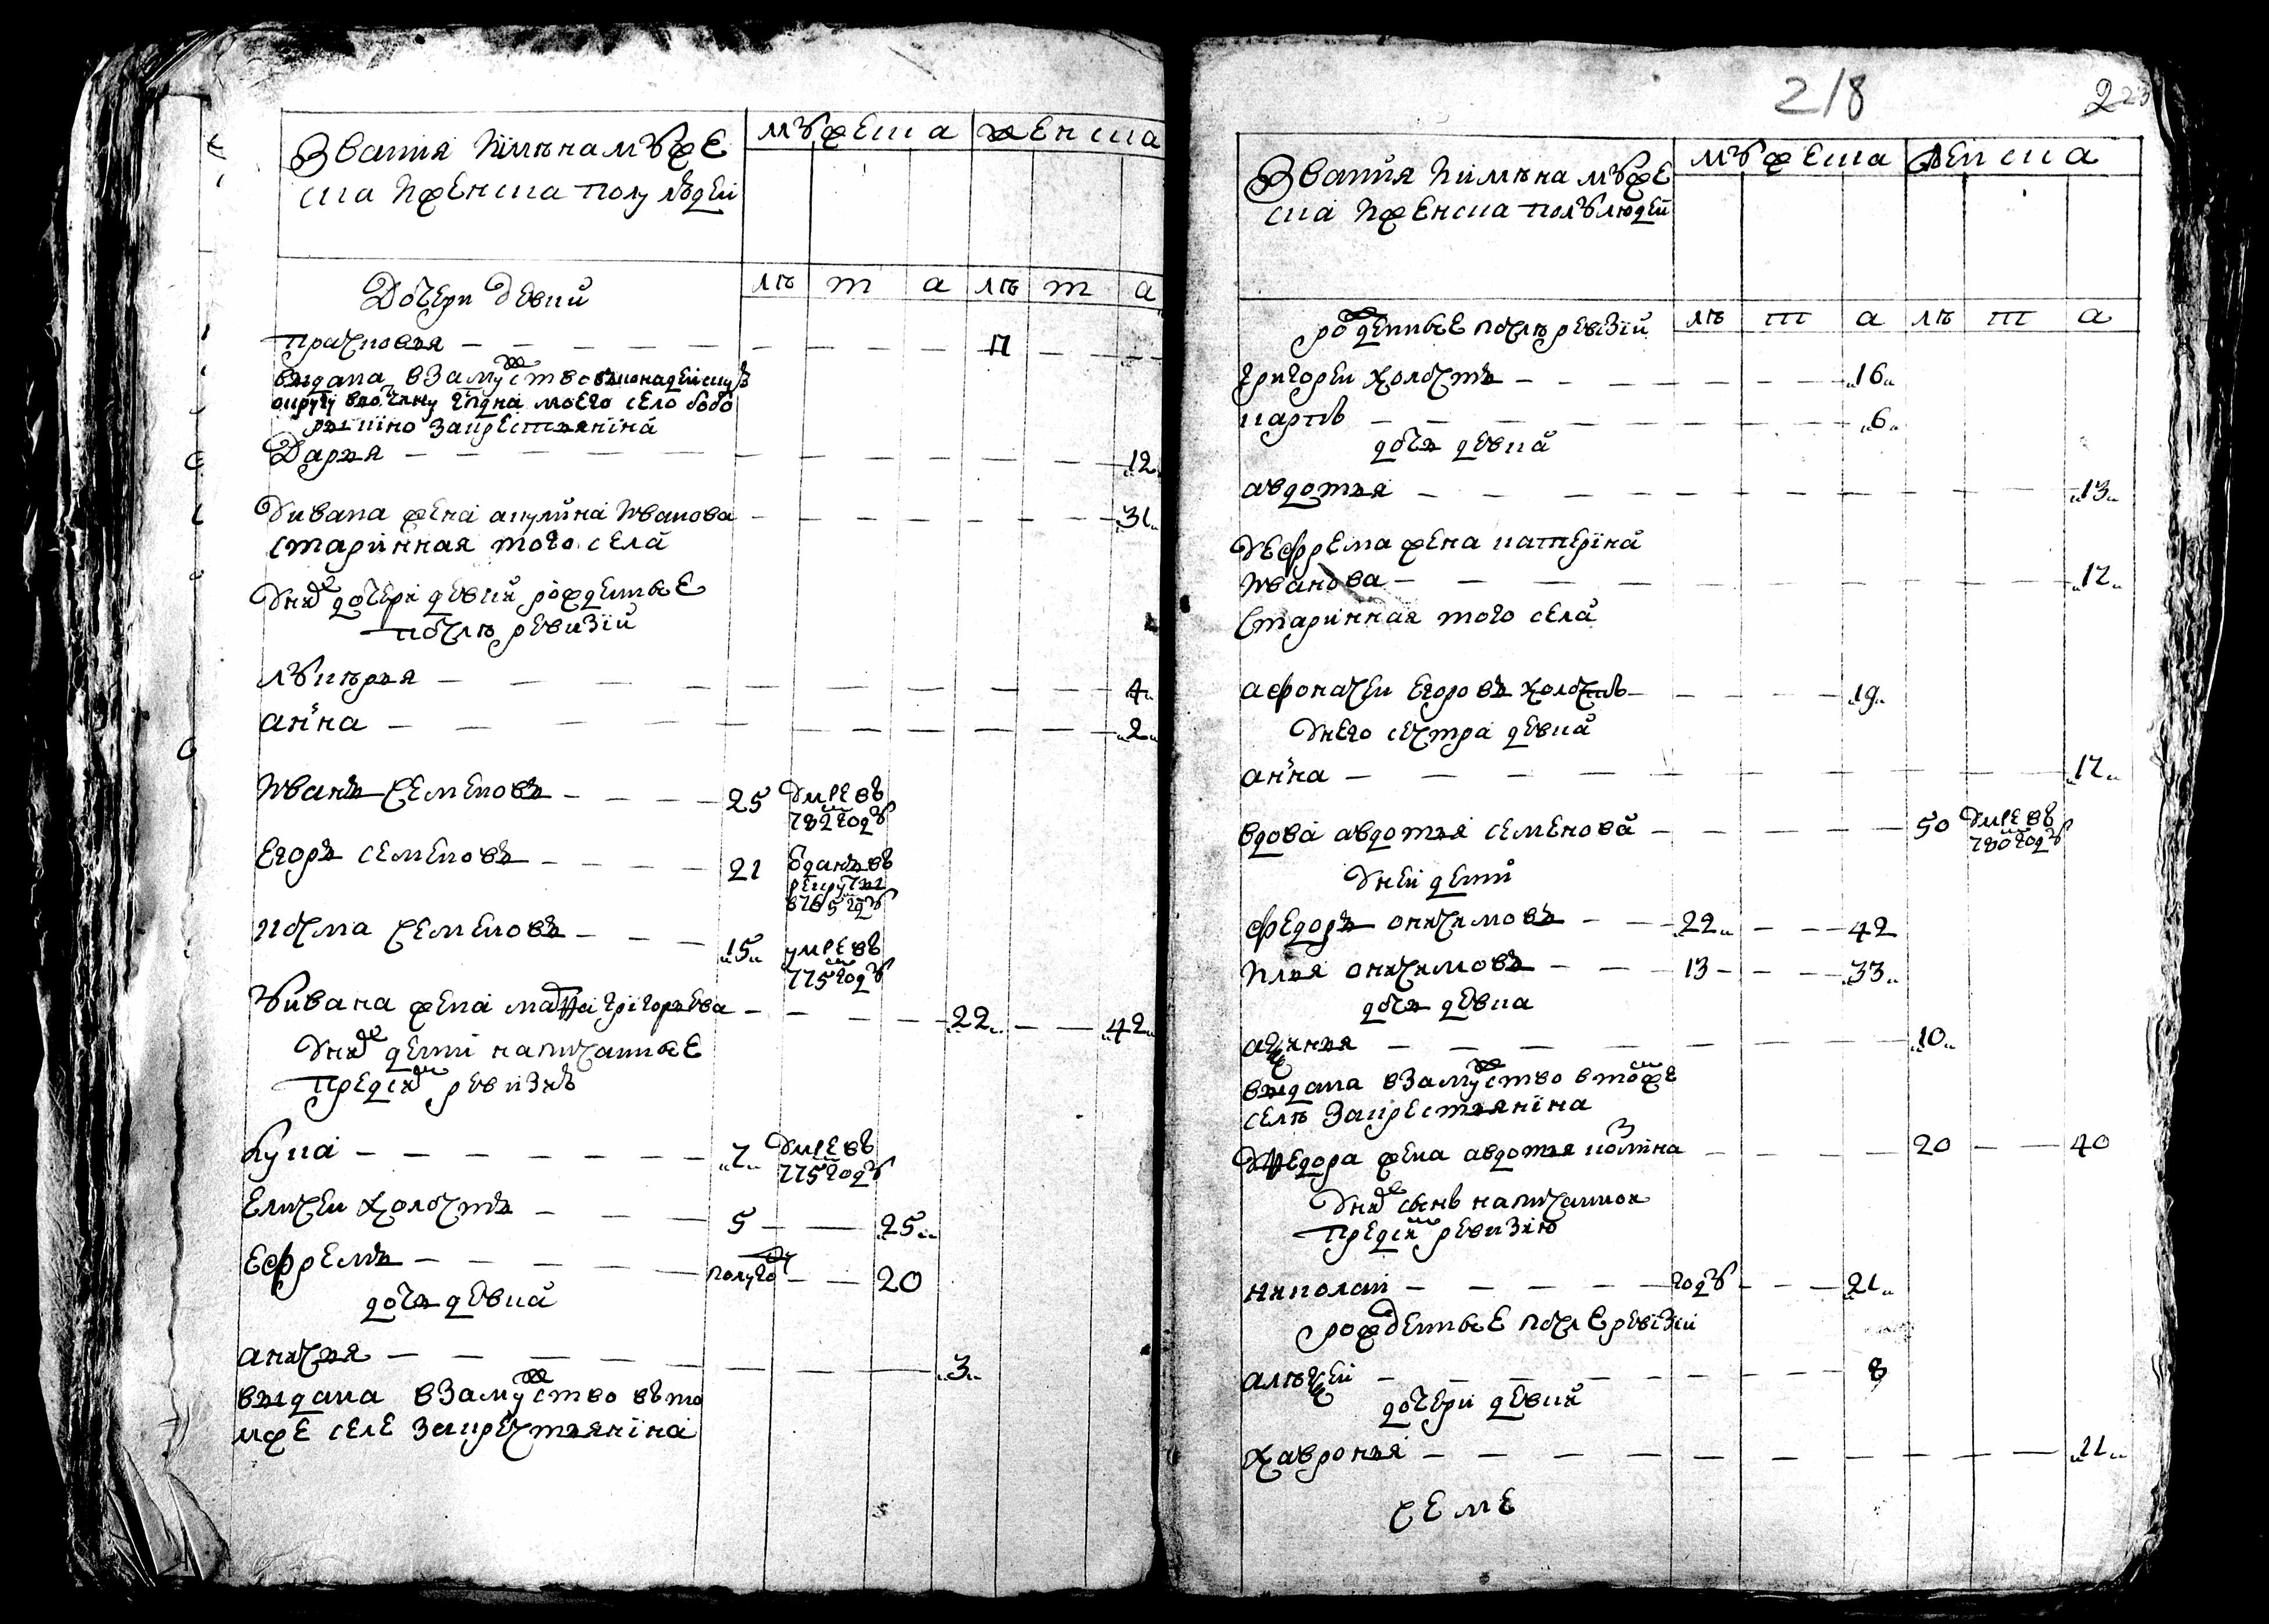 Звания имена мꙋже
ска и женска полу людеи
мꙋжеска
женска
лѣ т а лѣ т а
Дочери девки
Прасковья 11
выдана в замужство
округу вотчину гпдна моего село бобо
рыкино за крестьянина
Дарья 12
У ивана жена акулина иванова 31
старинная того села
У них дочери девки рожденные
после ревизии
лꙋкерья 4
анна 2
иванъ семеновъ 25 умре въ
782 годꙋ
егоръ семеновъ 21 отданъ въ
рекруты
косма семеновъ 15 умре въ
775 годꙋ
У ивана жена григорьева 22 42
У них дети написанные
пред сим ревизию
лука 7 умре въ
775 годꙋ
елисеи холостъ 5 25
ефремъ полуго 20
дочь девка
анисья 3
выдана взамужство въ то
мже селе за крестьянина
218
223
Звания имена мꙋже
ска и женска полꙋ людей
мꙋжеска женска
лѣ т а лѣ т а
рожденные после ревизии
григореи холостъ 16
карпъ 6
дочь девка
авдотья 13
У ефрема жена катерина
иванова 17
старинная того села
афонасеи егоровъ холостъ 19
У него сестра девка
анна 17
вдова авдотья семенова 50 умре въ
780 годꙋ
У неи дети
федоръ онисимовъ 22 42
илья онисимовъ 13 33
дочь девка
аксинья 10
выдана взамужство в томже
селѣ за крестьянина
У федора жена авдотья козмина 20 40
У них сынъ написаннои
пред сим ревизию
николаи годꙋ 21
рожденные после ревизии
алѣксеи 8
дочери девки
хавронья 11
семе